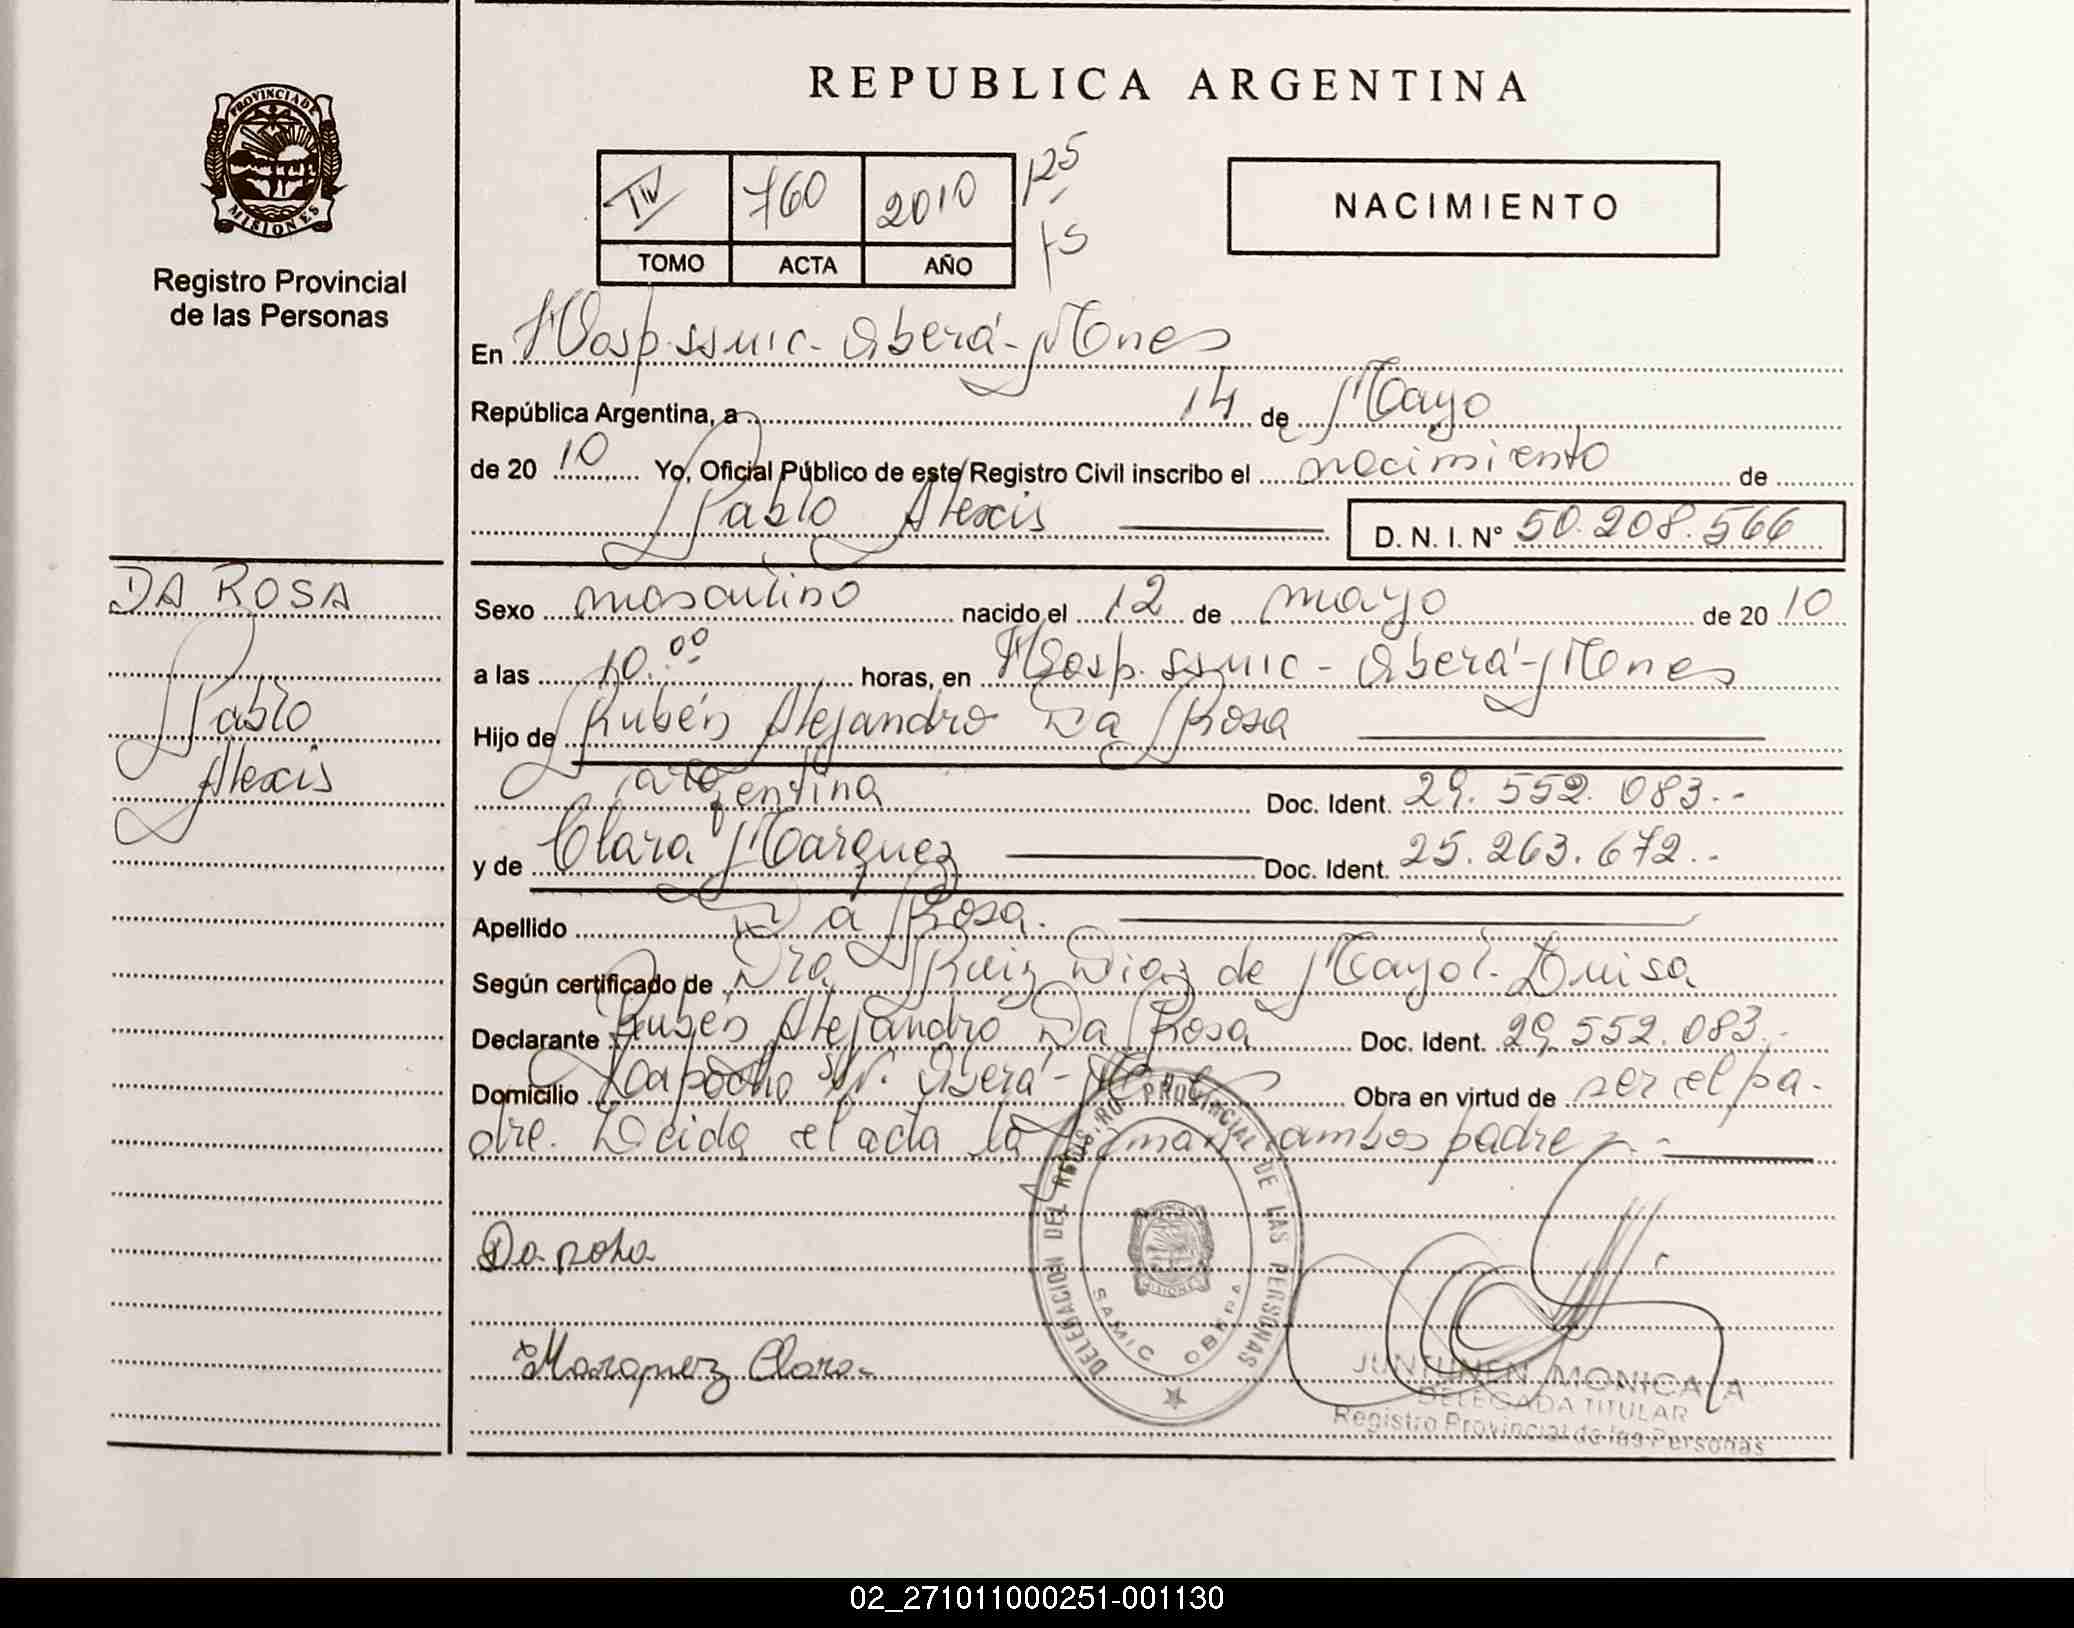 REPUBLICA ARGENTINA
PROVINCIA DE
MISIONES
Registro Provincial
de las Personas
IV 760 2010 125
TOMO ACTA AÑO
NACIMIENTO
En Hosp. SSMIC - Oberá - Mnes
República Argentina, a 14 de Mayo
de 20 10 Yo, Oficial Público de este Registro Civil inscribo el nacimiento de
Pablo Alexis D. N. I. N° 50.208.566
DA ROSA
Pablo
Alexis
Sexo masculino nacido el 12 de mayo de 20 10
a las 10.00 horas, en Hosp. SSMIC - Oberá - Mnes
Hijo de Rubén Alejandro Da Rosa
argentina Doc. Ident. 29.552.083.-
y de Clara Marquez Doc. Ident. 25.263.672.-
Apellido Da Rosa.
Según certificado de Dra Ruiz Diaz de Mayol Luisa
Declarante Rubén Alejandro Da Rosa Doc. Ident. 29.552.083.-
Domicilio s/n. Oberá - Obra en virtud de ser el pa-
dre. Leida el acta la firman ambos padres.-
Da rosa
Marquez Clara
DELEGACION DEL REGISTRO PROVINCIAL DE LAS PERSONAS
MISIONES
SAMIC OBERA
JUNTUNEN MONICA A
DELEGADA TITULAR
Registro Provincial de las Personas
02_271011000251-001130